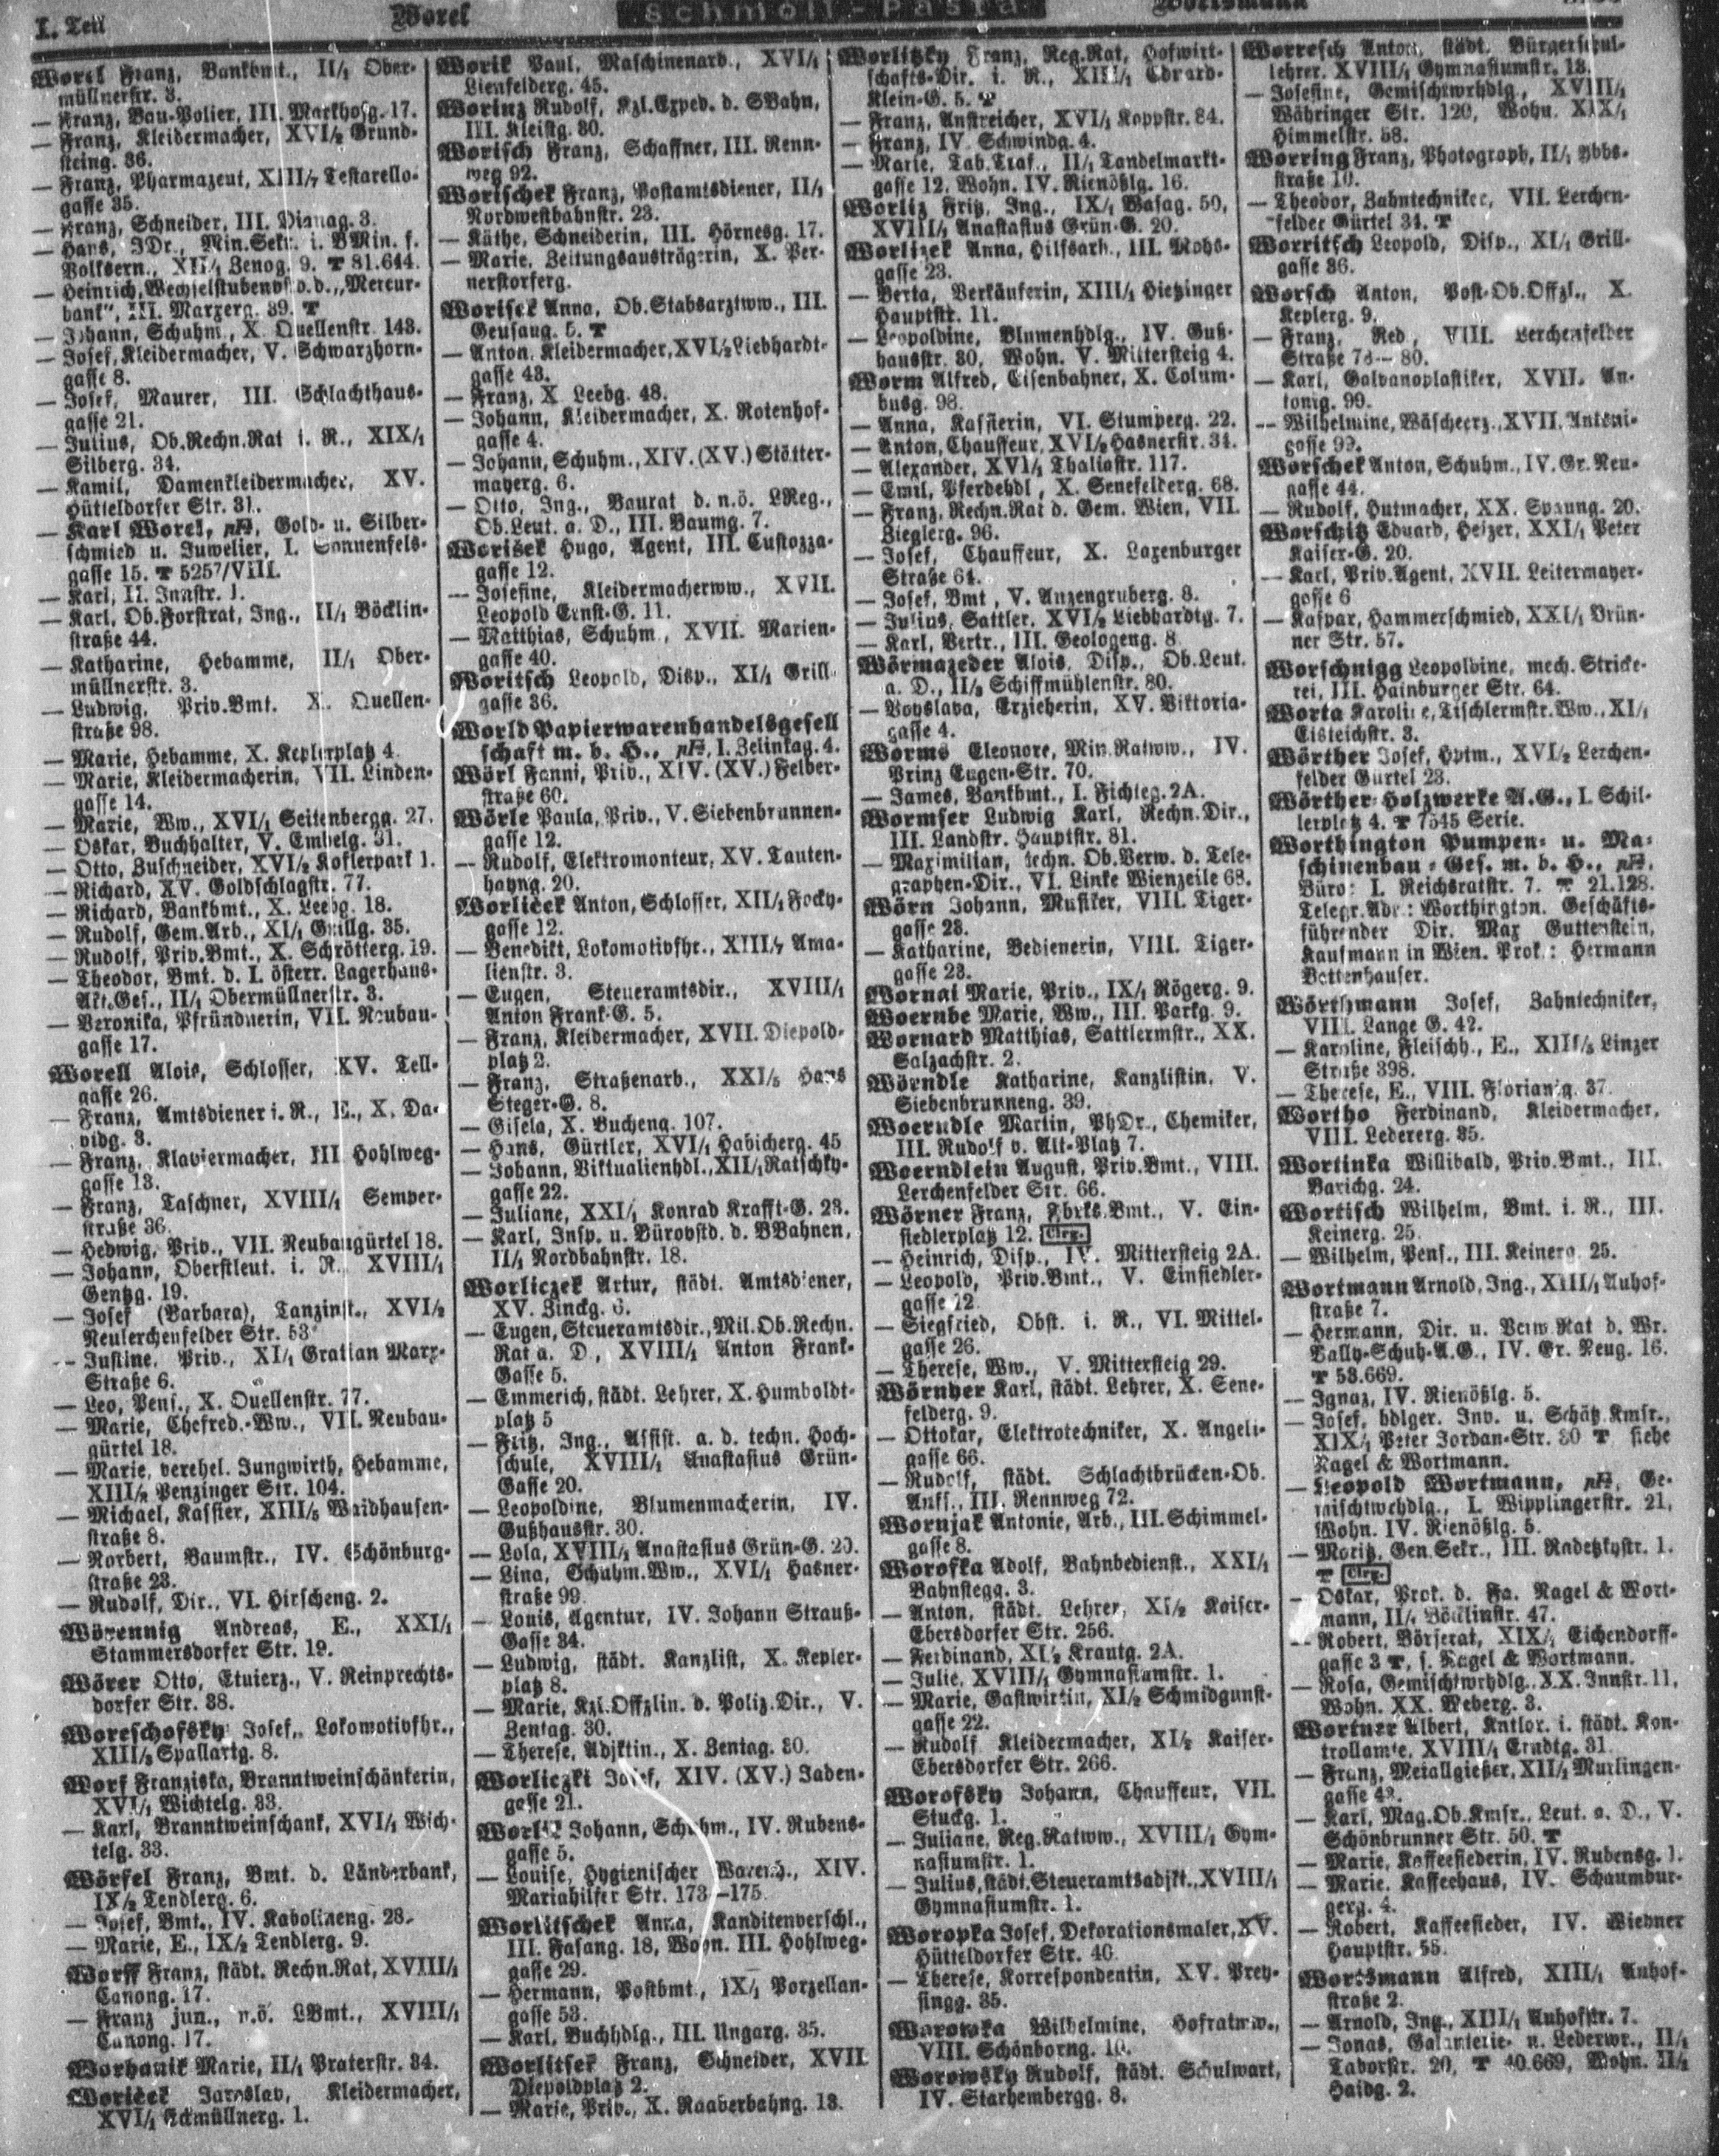 I. Teil
Worel
Schmoll-Pasta
Worel Franz, Bankbmt., II/1 Ober-
müllnerstr. 3.
— Franz, Bau-Polier, III. Markhofg. 17.
— Franz, Kleidermacher, XVI/2 Grund-
steing. 36.
— Franz, Pharmazeut, XIII/7 Testarello-
gasse 35.
— Franz, Schneider, III. Dianag. 3.
— Hans, JDr., Min.Sekr. i. BMin. f.
Volksern., XII/1 Zenog. 9. T 81.644.
— Heinrich, Wechselstubenvf d. „Mercur-
bank", III. Marxerg. 39. T
— Johann, Schuhm., X. Quellenstr. 143.
— Josef, Kleidermacher, V. Schwarzhorn-
gasse 8.
— Josef, Maurer, III. Schlachthaus-
gasse 21.
— Julius, Ob.Rechn.Rat i. R., XIX/1
Silberg. 34.
— Kamil, Damenkleidermacher, XV.
Hütteldorfer Str. 31.
— Karl Worel, pA, Gold- u. Silber-
schmied u. Juwelier, I. Sonnenfels-
gasse 15. T 5257/VIII.
— Karl, II. Innstr. 1.
— Karl, Ob.Forstrat, Ing., II/1 Böcklin-
straße 44.
— Katharine, Hebamme, II/1 Ober-
müllnerstr. 3.
— Ludwig, Priv.Bmt. X. Quellen-
straße 98.
— Marie, Hebamme, X. Keplerplatz 4
— Marie, Kleidermacherin, VII. Linden-
gasse 14.
— Marie, Ww., XVI/1 Seitenbergg. 27.
— Oskar, Buchhalter, V. Embelg. 31.
— Otto, Zuschneider, XVI/2 Koflerpark 1.
— Richard, XV. Goldschlagstr. 77.
— Richard, Bankbmt., X. Leebg. 18.
— Rudolf, Gem.Arb., XI/1 Grillg. 35.
— Rudolf, Priv.Bmt., X. Schrötterg. 19.
— Theodor, Bmt. d. I. österr. Lagerhaus-
Akt.Ges., II/1 Obermüllnerstr. 3.
— Veronika, Pfründnerin, VII. Neubau-
gasse 17.
Worell Alois, Schlosser, XV. Tell-
gasse 26.
— Franz, Amtsdiener i. R., E., X. Da-
vidg. 3.
— Franz, Klaviermacher, III Hohlweg-
gasse 13.
— Franz, Taschner, XVIII/1 Semper-
straße 36.
— Hedwig, Priv., VII. Neubaugürtel 18.
— Johann, Oberstleut. i. R. XVIII/1
Gentzg. 19.
— Josef (Barbara), Tanzinst., XVI/2
Neulerchenfelder Str. 53
— Justine, Priv., XI/1 Gratian Marx-
Straße 6.
— Leo, Pens., X. Quellenstr. 77.
— Marie, Chefred.-Ww., VII. Neubau-
gürtel 18.
— Marie, verehel. Jungwirth, Hebamme,
XIII/2 Penzinger Str. 104.
— Michael, Kassier, XIII/5 Waidhausen-
straße 8.
— Norbert, Baumstr., IV. Schönburg-
straße 23.
— Rudolf, Dir., VI. Hirscheng. 2.
Wörennig Andreas, E., XXI/1
Stammersdorfer Str. 19.
Wörer Otto, Etuierz., V. Reinprechts-
dorfer Str. 38.
Woreschofsky Josef, Lokomotivfhr.,
XIII/5 Spallartg. 8.
Worf Franziska, Branntweinschänkerin,
XVI/1 Wichtelg. 33.
— Karl, Branntweinschank, XVI/1 Wich-
telg. 33.
Wörfel Franz, Bmt. d. Länderbank,
IX/2 Tendlerg. 6.
— Josef, Bmt., IV. Kabolineng. 28.
— Marie, E., IX/2 Tendlerg. 9.
Worff Franz, städt. Rechn.Rat, XVIII/1
Canong. 17.
— Franz jun., n.ö. LBmt., XVIII/1
Canong. 17.
Worhanik Marie, II/1 Praterstr. 34.
Woriček Jaroslav, Kleidermacher,
XVI/1 Eckmüllnerg. 1.
Worik Paul, Maschinenarb., XVI/1
Lienfelderg. 45.
Worinz Rudolf, Kzl.Exped. d. SBahn,
III. Kleistg. 30.
Worisch Franz, Schaffner, III. Renn-
weg 92.
Worischek Franz, Postamtsdiener, II/1
Nordwestbahnstr. 23.
— Käthe, Schneiderin, III. Hörnesg. 17.
— Marie, Zeitungsausträgerin, X. Per-
nerstorferg.
Worisek Anna, Ob.Stabsarztww., III.
Geusaug. 5. T
— Anton, Kleidermacher, XVI/2 Liebhardt-
gasse 43.
— Franz, X Leebg. 48.
— Johann, Kleidermacher, X. Rotenhof-
gasse 4.
— Johann, Schuhm., XIV. (XV.) Stötter-
mayerg. 6.
— Otto, Ing., Baurat d. n.ö. LReg.,
Ob.Leut. a. D., III. Baumg. 7.
Worišek Hugo, Agent, III. Custozza-
gasse 12.
— Josefine, Kleidermacherww., XVII.
Leopold Ernst-G. 11.
— Matthias, Schuhm., XVII. Marien-
gasse 40.
Woritsch Leopold, Disp., XI/1 Grill-
gasse 36.
World Papierwarenhandelsgesell
schaft m. b. H., pA, I. Zelinkag. 4.
Wörl Fanni, Priv., XIV. (XV.) Felber-
straße 60.
Wörle Paula, Priv., V. Siebenbrunnen-
gasse 12.
— Rudolf, Elektromonteur, XV. Tauten-
hayng. 20.
Worliček Anton, Schlosser, XII/1 Focky-
gasse 12.
— Benedikt, Lokomotivfhr., XIII/7 Ama-
lienstr. 3.
— Eugen, Steueramtsdir., XVIII/1
Anton Frank-G. 5.
— Franz, Kleidermacher, XVII. Diepold-
platz 2.
— Franz, Straßenarb., XXI/5 Hans
Steger-G. 8.
— Gisela, X. Bucheng. 107.
— Hans, Gürtler, XVI/1 Habicherg. 45
— Johann, Viktualienhdl., XII/1 Ratschky-
gasse 22.
— Juliane, XXI/1 Konrad Krafft-G. 23.
— Karl, Insp. u. Bürovstd. d. BBahnen,
II/1 Nordbahnstr. 18.
Worliczek Artur, städt. Amtsdiener,
XV. Zinckg. 6.
— Eugen, Steueramtsdir., Mil.Ob.Rechn.
Rat a. D, XVIII/1 Anton Frank-
Gasse 5.
— Emmerich, städt. Lehrer, X. Humboldt-
platz 5
— Fritz, Ing., Assist. a. d. techn. Hoch-
schule, XVIII/1 Anastasius Grün-
Gasse 20.
— Leopoldine, Blumenmacherin, IV.
Gußhausstr. 30.
— Lola, XVIII/1 Anastasius Grün-G. 20.
— Lina, Schuhm.Ww., XVI/1 Hasner-
straße 99.
— Louis, Agentur, IV. Johann Strauß-
Gasse 34.
— Ludwig, städt. Kanzlist, X. Kepler-
platz 8.
— Marie, Kzl.Offzlin. d. Poliz.Dir., V.
Zentag. 30.
— Therese, Adjktin., X. Zentag. 30.
Worliczki Josef, XIV. (XV.) Jaden-
gasse 21.
Johann, Schuhm., IV. Rubens-
gasse 5.
— Louise, Hygienischer Warenh., XIV.
Mariahilfer Str. 173—175.
Worlitschek Anna, Kanditenverschl.,
III. Fasang. 18, Wohn. III. Hohlweg-
gasse 29.
— Hermann, Postbmt., IX/1 Porzellan-
gasse 53.
— Karl, Buchhdlg., III. Ungarg. 35.
Worlitsek Franz, Schneider, XVII
Diepoldplatz 2.
— Marie, Priv., X. Raaberbahng. 13.
Worlitzky Franz, Reg.Rat, Hofwirt-
schafts-Dir. i. R., XIII/1 Eduard-
Klein-G. 5. T
— Franz, Anstreicher, XVI/1 Koppstr. 84.
— Franz, IV. Schwindg. 4.
— Marie, Tab.Traf., II/1 Tandelmarkt-
gasse 12, Wohn. IV. Rienößlg. 16.
Worliz Fritz, Ing., IX/1 Wasag. 50,
XVIII/1 Anastasius Grün-G. 20.
Worlizek Anna, Hilfsarb., III. Mohs-
gasse 23.
— Berta, Verkäuferin, XIII/1 Hietzinger
Hauptstr. 11.
— Leopoldine, Blumenhdlg., IV. Guß-
hausstr. 30, Wohn. V. Mittersteig 4.
Worm Alfred, Eisenbahner, X. Colum-
busg. 98.
— Anna, Kassierin, VI. Stumperg. 22.
— Anton, Chauffeur, XVI/2 Hasnerstr. 34.
— Alexander, XVI/1 Thaliastr. 117.
— Emil, Pferdehdl, X. Senefelderg. 68.
— Franz, Rechn.Rat d. Gem. Wien, VII.
Zieglerg. 96.
— Josef, Chauffeur, X. Laxenburger
Straße 64.
— Josef, Bmt, V. Anzengruberg. 8.
— Julius, Sattler, XVI/2 Liebhardtg. 7.
— Karl, Vertr., III. Geologeng. 8
Wörmazeder Alois, Disp., Ob.Leut.
a. D., II/3 Schiffmühlenstr. 80.
— Voyslava, Erzieherin, XV. Viktoria-
gasse 4.
Worms Eleonore, Min.Ratww., IV.
Prinz Eugen-Str. 70.
— James, Bankbmt., I. Fichteg. 2A.
Wormser Ludwig Karl, Rechn.Dir.,
III. Landstr. Hauptstr. 81.
— Maximilian, techn. Ob.Verw. d. Tele-
graphen-Dir., VI. Linke Wienzeile 68.
Wörn Johann, Musiker, VIII. Tiger-
gasse 23.
— Katharine, Bedienerin, VIII. Tiger-
gasse 23.
Wornai Marie, Priv., IX/1 Rögerg. 9.
Woernbe Marie, Ww., III. Parkg. 9.
Wornard Matthias, Sattlermstr., XX.
Salzachstr. 2.
Wörndle Katharine, Kanzlistin, V.
Siebenbrunneng. 39.
Woerndle Martin, PhDr., Chemiker,
III. Rudolf v. Alt-Platz 7.
Woerndlein August, Priv.Bmt., VIII.
Lerchenfelder Str. 66.
Wörner Franz, Fbrks.Bmt., V. Ein-
siedlerplatz 12. Clrg.
— Heinrich, Disp., IV. Mittersteig 2A.
— Leopold, Priv.Bmt., V. Einsiedler-
gasse 12.
— Siegfried, Obst. i. R., VI. Mittel-
gasse 26.
— Therese, Ww., V. Mittersteig 29.
Wörnher Karl, städt. Lehrer, X. Sene-
felderg. 9.
— Ottokar, Elektrotechniker, X. Angeli-
gasse 66.
— Rudolf, städt. Schlachtbrücken-Ob.
Aufs., III. Rennweg 72.
Wornjak Antonie, Arb., III. Schimmel-
gasse 8.
Worofka Adolf, Bahnbedienst., XXI/1
Bahnstegg. 3.
— Anton, städt. Lehrer, XI/2 Kaiser-
Ebersdorfer Str. 256.
— Ferdinand, XI/2 Krautg. 2A.
— Julie, XVIII/1 Gymnasiumstr. 1.
— Marie, Gastwirtin, XI/2 Schmidgunst-
gasse 22.
— Rudolf Kleidermacher, XI/2 Kaiser-
Ebersdorfer Str. 266.
Worofsky Johann, Chauffeur, VII.
Stuckg. 1.
— Juliane, Reg.Ratww., XVIII/1 Gym-
nasiumstr. 1.
— Julius, städt. Steueramtsadjkt., XVIII/1
Gymnasiumstr. 1.
Woropka Josef, Dekorationsmaler, XV.
Hütteldorfer Str. 40.
— Therese, Korrespondentin, XV. Prey-
singg. 35.
Worowka Wilhelmine, Hofratww.,
VIII. Schönborng. 10.
Worowsky Rudolf, städt. Schulwart,
IV. Starhembergg. 8.
Worresch Anton, städt. Bürgerschul-
lehrer, XVIII/1 Gymnasiumstr. 13.
— Josefine, Gemischtwrhdlg., XVIII/1
Währinger Str. 120, Wohn. XIX/1
Himmelstr. 58.
Worring Franz, Photograph, II/1 Ybbs-
straße 10.
— Theodor, Zahntechniker, VII. Lerchen-
felder Gürtel 34. T
Worritsch Leopold, Disp., XI/1 Grill-
gasse 36.
Worsch Anton, Post-Ob.Offzl., X.
Keplerg. 9.
— Franz, Red, VIII. Lerchenfelder
Straße 78—80.
— Karl, Galvanoplastiker, XVII. An-
tonig. 99.
— Wilhelmine, Wäscheerz., XVII. Antoni-
gasse 99.
Worschek Anton, Schuhm., IV. Gr. Neu-
gasse 44.
— Rudolf, Hutmacher, XX. Spaung. 20.
Worschitz Eduard, Heizer, XXI/1 Peter
Kaiser-G. 20.
— Karl, Priv.Agent, XVII. Leitermayer-
gasse 6
— Kaspar, Hammerschmied, XXI/1 Brün-
ner Str. 57.
Worschnigg Leopoldine, mech. Stricke-
rei, III. Hainburger Str. 64.
Worta Karoline, Tischlermstr.Ww., XI/1
Eisteichstr. 3.
Wörther Josef, Hptm., XVI/2 Lerchen-
felder Gürtel 23.
Wörther Holzwerke A.G., I. Schil-
lerplatz 4. T 7545 Serie.
Worthington Pumpen- u. Ma-
schinenbau-Ges. m. b. H., pA,
Büro: I. Reichsratstr. 7. T 21.128.
Telegr.Adr.: Worthington. Geschäfts-
führender Dir. Max Guttenstein,
Kaufmann in Wien. Prok.: Hermann
Bettenhauser.
Wörthmann Josef, Zahntechniker,
VIII. Lange G. 42.
— Karoline, Fleischh., E., XIII/5 Linzer
Straße 398.
— Therese, E., VIII. Florianig. 37.
Wortho Ferdinand, Kleidermacher,
VIII. Ledererg. 35.
Wortinka Willibald, Priv.Bmt., III.
Barichg. 24.
Wortisch Wilhelm, Bmt. i. R., III.
Keinerg. 25.
— Wilhelm, Pens., III. Keinerg. 25.
Wortmann Arnold, Ing., XIII/1 Auhof-
straße 7.
— Hermann, Dir. u. Verw.Rat d. Wr.
Bally-Schuh-A.G., IV. Gr. Neug. 16.
T 53.669.
— Ignaz, IV. Rienößlg. 5.
— Josef, bdlger. Inv. u. Schätz.Kmsr.,
XIX/1 Peter Jordan-Str. 30 T, siehe
Nagel & Wortmann.
— Leopold Wortmann, pA, Ge-
mischtwrhdlg., I. Wipplingerstr. 21,
Wohn. IV. Rienößlg. 5.
— Moritz, Gen.Sekr., III. Radetzkystr. 1.
T Clrg.
— Oskar, Prok. d. Fa. Nagel & Wort-
mann, II/1 Böcklinstr. 47.
— Robert, Börserat, XIX/1 Eichendorff-
gasse 3 T, s. Nagel & Wortmann.
— Rosa, Gemischtwrhdlg., XX. Innstr. 11,
Wohn. XX. Weberg. 3.
Wortner Albert, Kntlor. i. städt. Kon-
trollamte, XVIII/1 Erndtg. 31.
— Franz, Metallgießer, XII/1 Murlingen-
gasse
— Karl, Mag.Ob.Kmsr., Leut. a. D., V.
Schönbrunner Str. 50. T
— Marie, Kaffeesiederin, IV. Rubensg. 1.
— Marie, Kaffeehaus, IV. Schaumbur-
gerg. 4.
— Robert, Kaffeesieder, IV. Wiedner
Hauptstr. 55.
Wortsmann Alfred, XIII/1 Auhof-
straße 2.
— Arnold, Ing., XIII/1 Auhofstr. 7.
— Jonas, Galanterie- u. Lederwr., II/1
Taborstr. 20, T 40.669, Wohn. II/2
Haidg. 2.